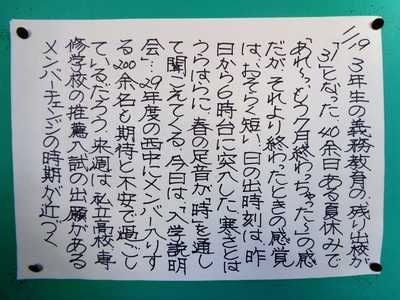 11/9 3年生の義務教育の、残り出校が
「/3」となった。40余日ある夏休みで
「あれ〜、もう7月終わっちゃった〜」の感
だが、それより終わったときの感覚
は、おそらく短い。日の出時刻は、昨
日から6時台に突入した。寒さとは
うらはらに、春の足音が「時」を通し
て聞こえてくる。今日は、「入学説明
会」…29年度の西中にメンバー入りす
る200余名も期待と不安で過ごし
ているだろう。来週は、私立高校・専
修学校の推薦入試の出願がある
メンバーチェンジの時期が近づく